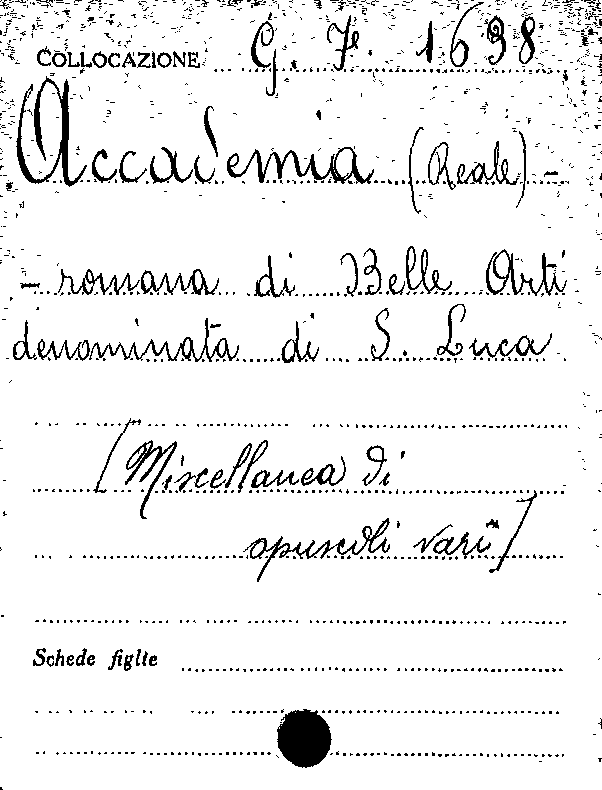 COLLOCAZIONE G. F. 1698
Accademia (Reale) -
- romana di Belle Arti
denominata di S. Luca
[Miscellanea di
opuscoli varii]
Schede figlte